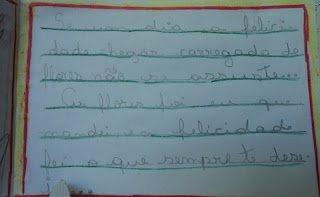 Se um dia a felici
dade chegar carregada de
flores não se assuste...
As flores foi eu que
mandei, e a felicidade
foi o que sempre te dese-
j